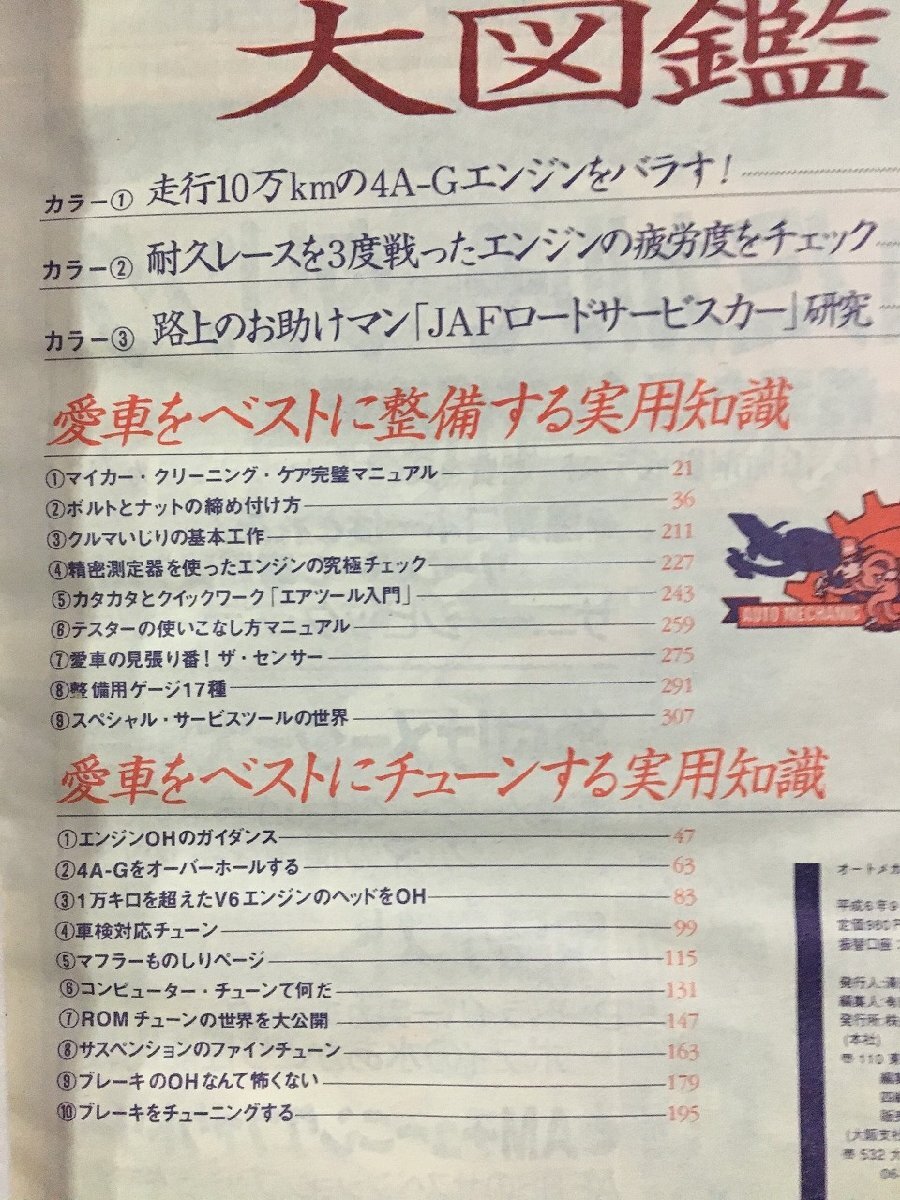 大図鑑
カラー① 走行10万kmの4A-Gエンジンをバラす!
カラー② 耐久レースを3度戦ったエンジンの疲労度をチェック
カラー③ 路上のお助けマン「JAFロードサービスカー」研究
愛車をベストに整備する実用知識
①マイカー・クリーニング・ケア完璧マニュアル 21
②ボルトとナットの締め付け方 36
③クルマいじりの基本工作 211
④精密測定器を使ったエンジンの究極チェック 227
⑤カタカタとクイックワーク「エアツール入門」 243
⑥テスターの使いこなし方マニュアル 259
⑦愛車の見張り番!ザ・センサー 275
⑧整備用ゲージ17種 291
⑨スペシャル・サービスツールの世界 307
AUTO MECHANIC
愛車をベストにチューンする実用知識
①エンジンOHのガイダンス 47
②4A-Gをオーバーホールする 63
③1万キロを超えたV6エンジンのヘッドをOH 83
④車検対応チューン 99
⑤マフラーものしりページ 115
⑥コンピューター・チューンて何だ 131
⑦ROMチューンの世界を大公開 147
⑧サスペンションのファインチューン 163
⑨ブレーキのOHなんて怖くない 179
⑩ブレーキをチューニングする 195
オートメカ
平成6年9
定価980円
振替口座:
発行人:
編集人:
発行所:株
(本社)
〒110 東
編集
販売
(大阪支社
〒532 大
06-